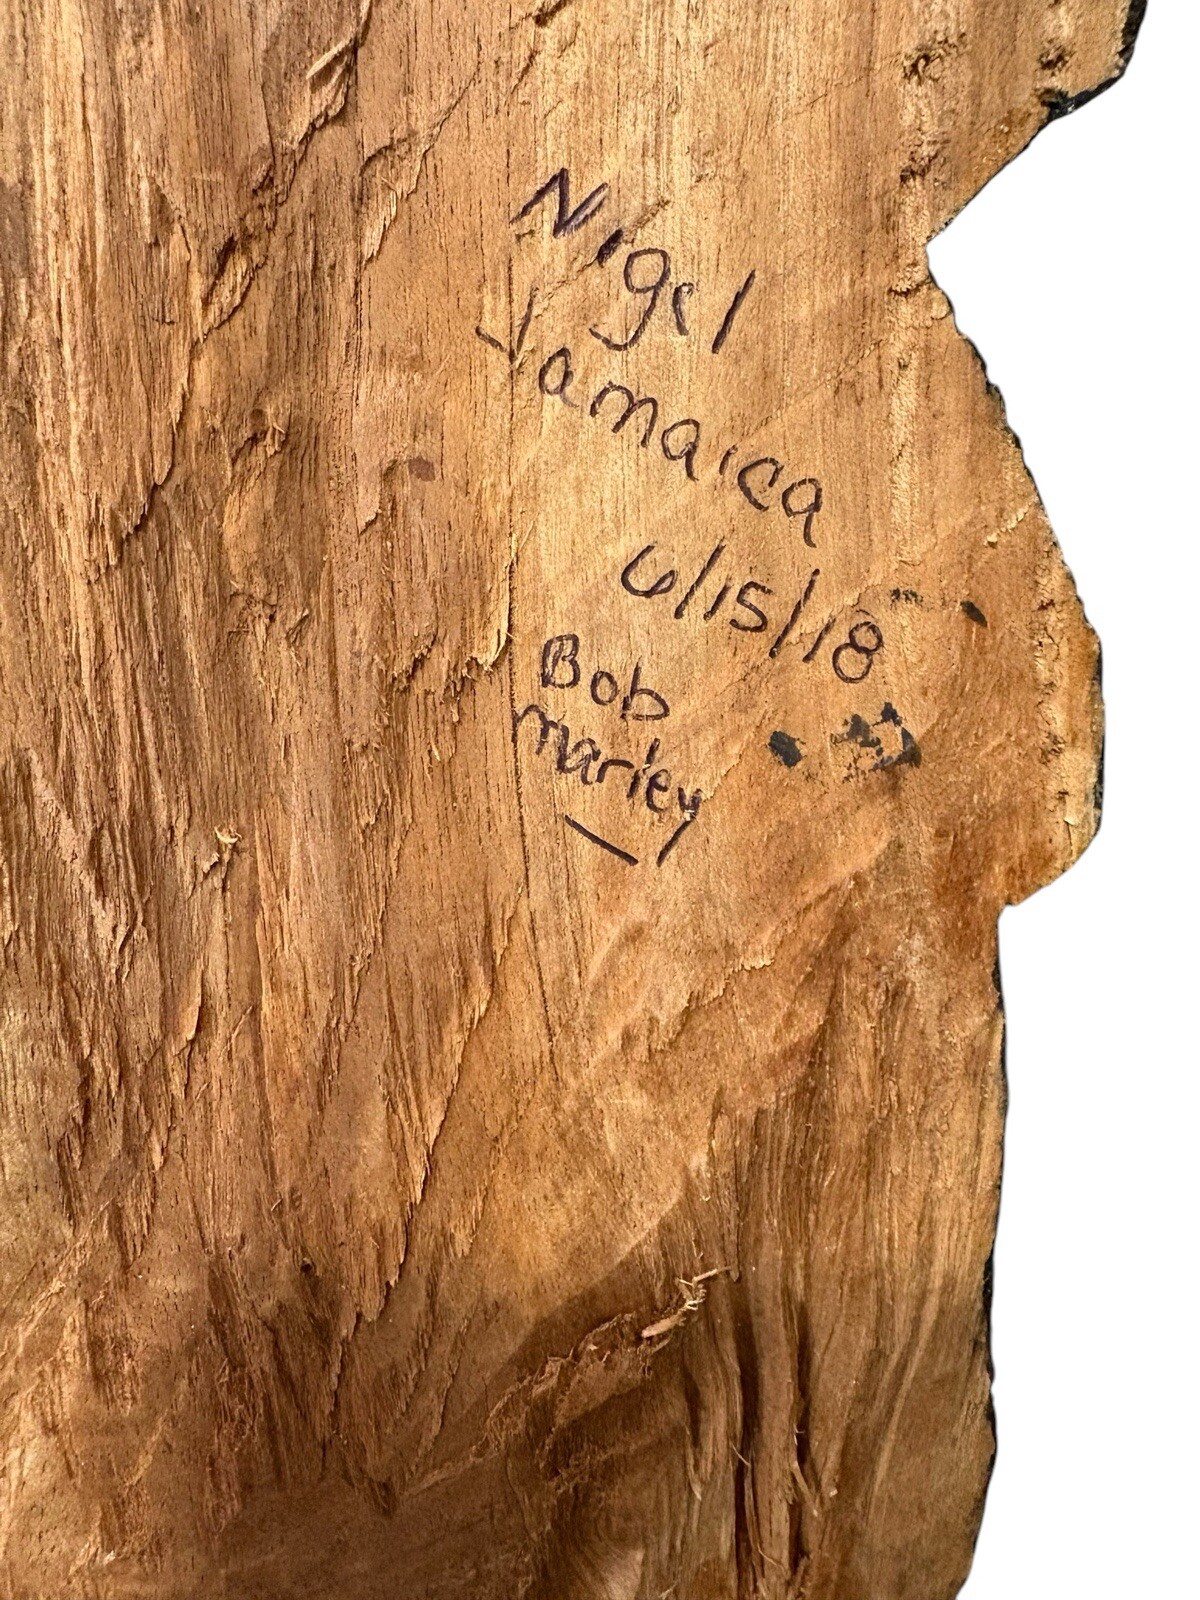 Nigel
Jamaica
6/15/18
Bob
marley